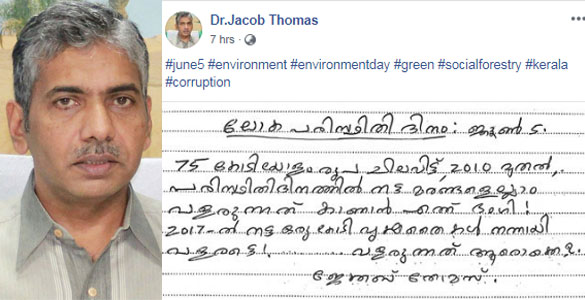 Dr.Jacob Thomas
7 hrs ·
#june5 #environment #environmentday #green #socialforestry #kerala
#corruption
ലോക പരിസ്ഥിതി ദിനം: ജൂൺ 5.
75 കോടിയോളം രൂപ ചിലവിട്ട്, 2010 മുതൽ,
പരിസ്ഥിതിദിനത്തിൽ നട്ട മരങ്ങളെല്ലാം
വളരുന്നത് കാണാൻ എന്ത് ഭംഗി!
2017-ൽ നട്ട ഒരു കോടി വൃക്ഷതൈകൾ നന്നായി
വളരട്ടെ! വളരുന്നത്
ജേക്കബ് തോമസ്.